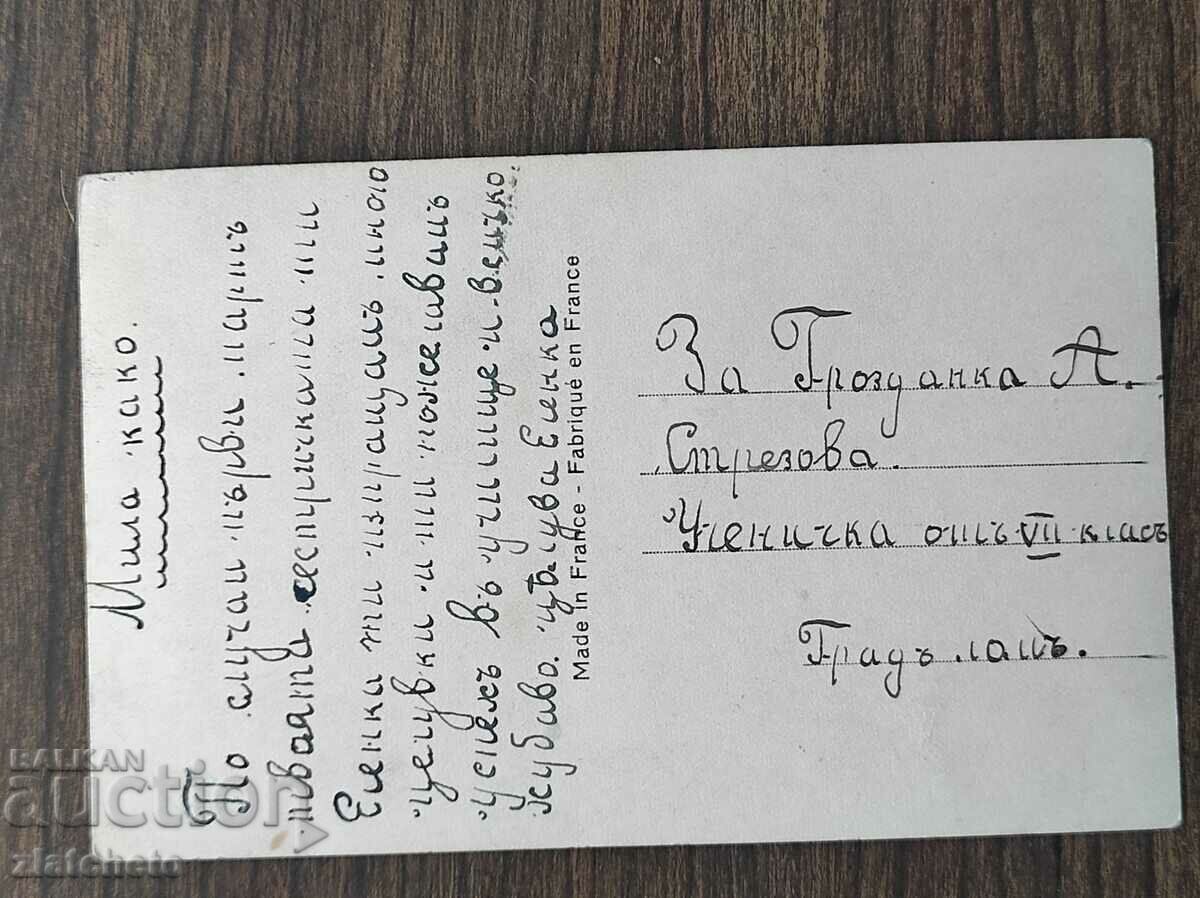 Мила како.
По случай първи мартъ
твоята сестричката ти
Еленка ти изпращамъ много
целувки и ти пожелавамъ
успехъ въ училище и всичко
хубаво. цѣлува Еленка
Made in France - Fabriqué en France
За Грозданка А.
Стрезова.
Ученичка отъ VII класъ
Градъ Ломъ.
BALKAN
auction
zlatcheto